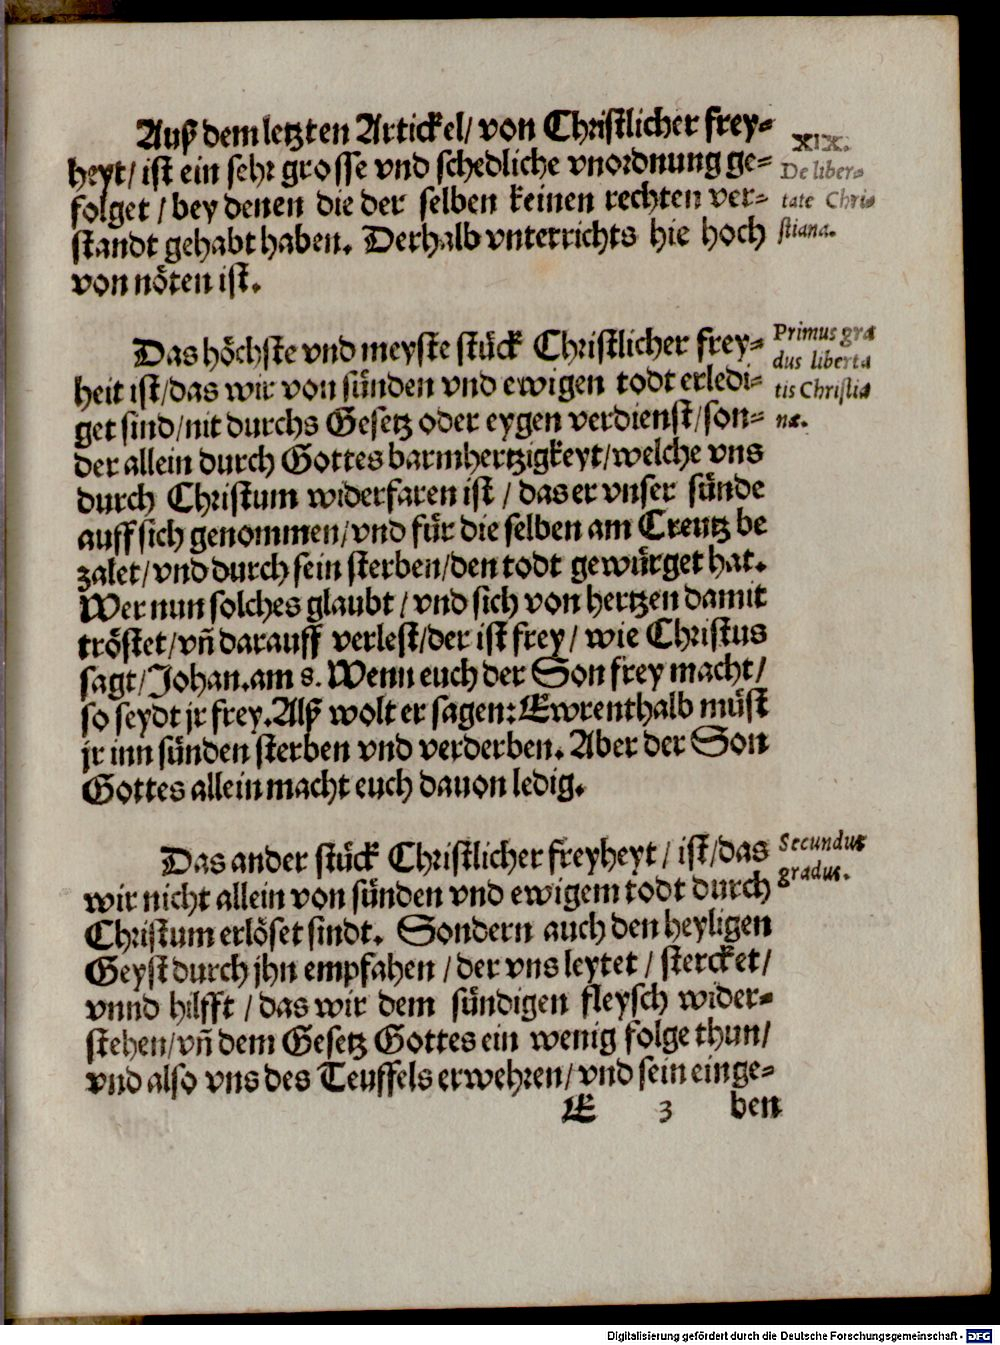 Auß dem letzten Artickel/ von Christlicher frey-
heyt/ ist ein sehr grosse vnd schedliche vnordnung ge-
folget / bey denen die der selben keinen rechten ver-
standt gehabt haben. Derhalb vnterrichts hie hoch
von nöten ist.
XIX.
De liber-
tate Chri-
stiana.
Das höchste vnd meyste stück Christlicher frey-
heit ist/das wir von sünden vnd ewigen todt erledi-
get sind/nit durchs Gesetz oder eygen verdienst/son-
der allein durch Gottes barmhertzigkeyt/welche vns
durch Christum widerfaren ist / das er vnser sünde
auff sich genommen/vnd für die selben am Creutz be
zalet/vnd durch sein sterben/den todt gewürget hat.
Wer nun solches glaubt / vnd sich von hertzen damit
tröstet/vñ darauff verlest/der ist frey/ wie Christus
sagt/Johan.am 8. Wenn euch der Son frey macht/
so seydt jr frey.Alß wolt er sagen:Ewrenthalb müst
jr inn sünden sterben vnd verderben. Aber der Son
Gottes allein macht euch dauon ledig.
Primus gra
dus liberta
tis Christia
næ.
Das ander stück Christlicher freyheyt/ ist/das
wir nicht allein von sünden vnd ewigem todt durch
Christum erlöset sindt. Sondern auch den heyligen
Geyst durch jhn empfahen /der vns leytet / stercket/
vnnd hilfft / das wir dem sündigen fleysch wider-
stehen/vñ dem Gesetz Gottes ein wenig folge thun/
vnd also vns des Teuffels erwehren/vnd sein einge-
Secundus
gradus.
E 3 ben
Digitalisierung gefördert durch die Deutsche Forschungsgemeinschaft - DFG